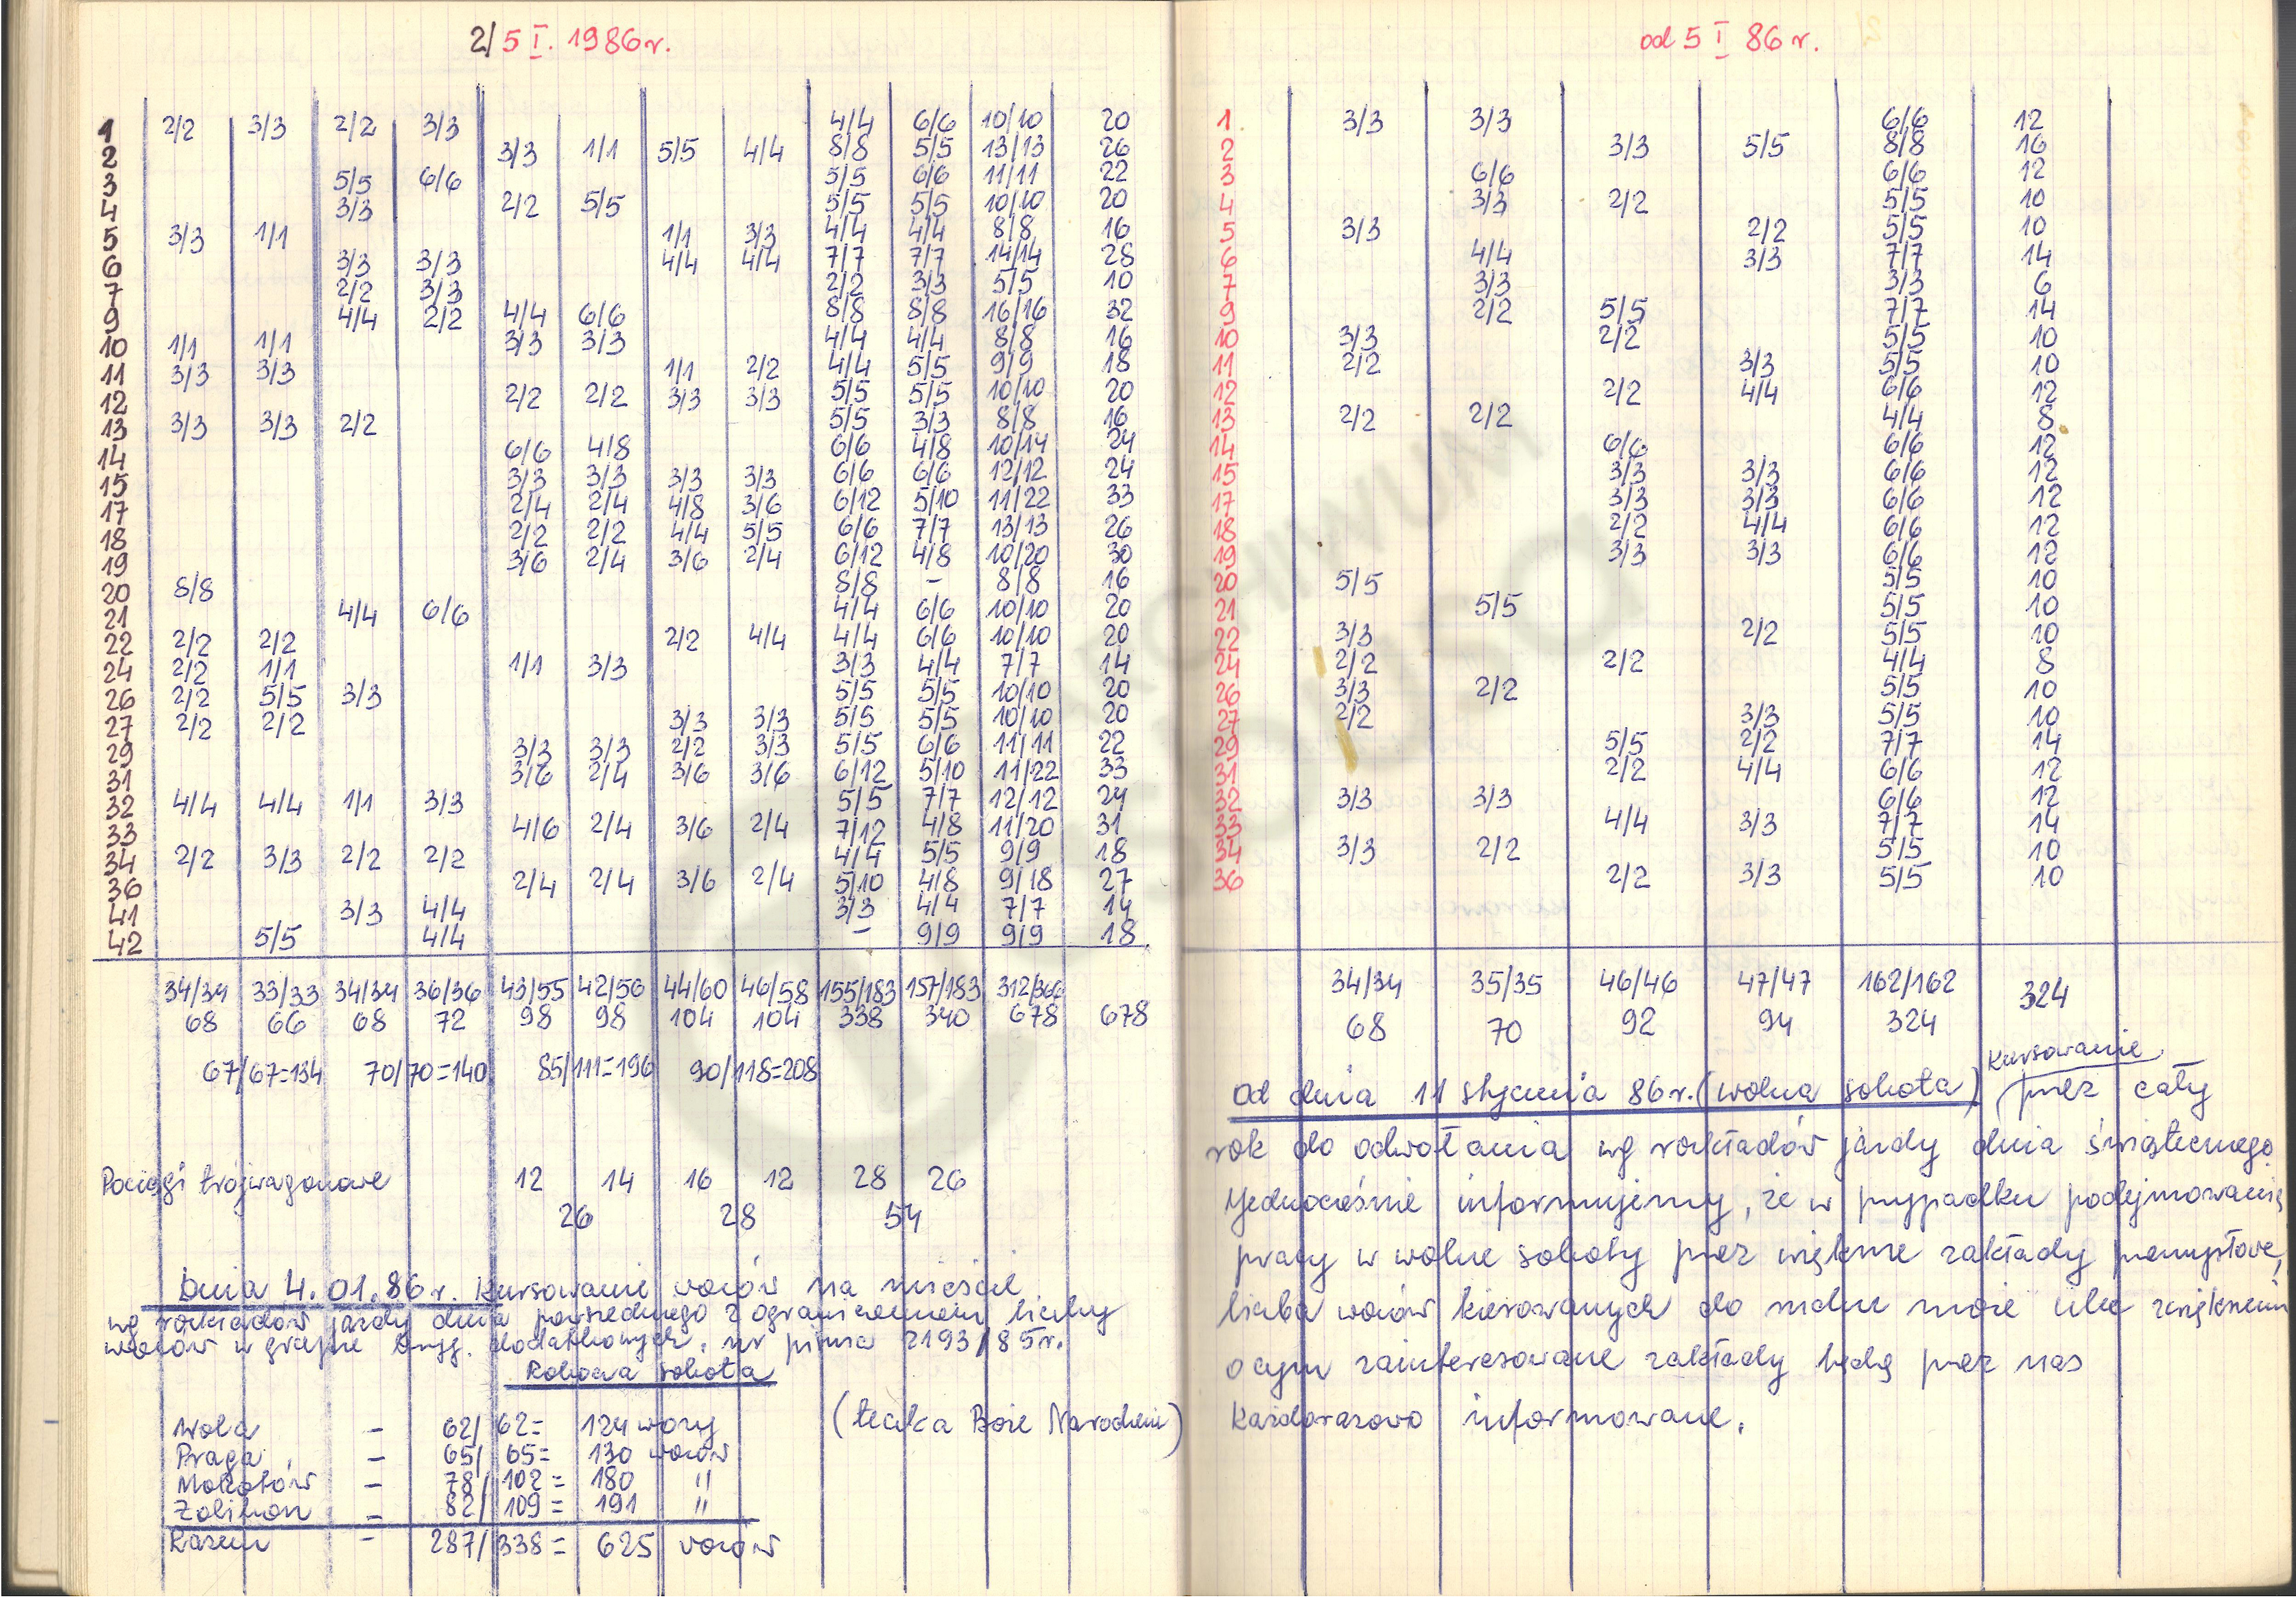 2/5 I. 1986r.
1 2/2 3/3 2/2 3/3 4/4 6/6 10/10 20
2 3/3 1/1 5/5 4/4 8/8 5/5 13/13 26
3 5/5 6/6 5/5 6/6 11/11 22
4 3/3 2/2 5/5 5/5 5/5 10/10 20
5 3/3 1/1 1/1 3/3 4/4 4/4 8/8 16
6 3/3 3/3 4/4 4/4 7/7 7/7 14/14 28
7 2/2 3/3 2/2 3/3 5/5 10
9 4/4 2/2 4/4 6/6 8/8 8/8 16/16 32
10 1/1 1/1 3/3 3/3 4/4 4/4 8/8 16
11 3/3 3/3 1/1 2/2 4/4 5/5 9/9 18
12 2/2 2/2 3/3 3/3 5/5 5/5 10/10 20
13 3/3 3/3 2/2 5/5 3/3 8/8 16
14 6/6 4/8 6/6 4/8 10/14 24
15 3/3 3/3 3/3 3/3 6/6 6/6 12/12 24
17 2/4 2/4 4/8 3/6 6/12 5/10 11/22 33
18 2/2 2/2 4/4 5/5 6/6 7/7 13/13 26
19 3/6 2/4 3/6 2/4 6/12 4/8 10/20 30
20 8/8 8/8 - 8/8 16
21 4/4 6/6 4/4 6/6 10/10 20
22 2/2 2/2 2/2 4/4 4/4 6/6 10/10 20
24 2/2 1/1 1/1 3/3 3/3 4/4 7/7 14
26 2/2 5/5 3/3 5/5 5/5 10/10 20
27 2/2 2/2 3/3 3/3 5/5 5/5 10/10 20
29 3/3 3/3 2/2 3/3 5/5 6/6 11/11 22
31 3/6 2/4 3/6 3/6 6/12 5/10 11/22 33
32 4/4 4/4 1/1 3/3 5/5 7/7 12/12 24
33 4/6 2/4 3/6 2/4 7/12 4/8 11/20 31
34 2/2 3/3 2/2 2/2 4/4 5/5 9/9 18
36 2/4 2/4 3/6 2/4 5/10 4/8 9/18 27
41 3/3 4/4 3/3 4/4 7/7 14
42 5/5 4/4 - 9/9 9/9 18
34/34 33/33 34/34 36/36 43/55 42/56 44/60 46/58 155/183 157/183 312/366
68 66 68 72 98 98 104 104 338 340 678 678
67/67=134 70/70=140 85/111=196 90/118=208
Pociągi trójwagonowe 12 14 16 12 28 26
26 28 54
Dnia 4.01.86r. Kursowanie wozów na mieście
wg rozkładów jazdy dnia powszedniego z ograniczeniem liczby
wozów w grafie bryg. dodatkowych. nr pisma 2193/85r.
Robocza sobota
Wola - 62/62= 124 wozy (teczka Boże Narodzenie)
Praga - 65/65= 130 wozów
Mokotów - 78/102= 180 "
Żoliborz - 82/109= 191 "
Razem - 287/338= 625 wozów
od 5 I 86r.
1. 3/3 3/3 6/6 12
2 3/3 5/5 8/8 16
3 6/6 6/6 12
4 3/3 2/2 5/5 10
5 3/3 2/2 5/5 10
6 4/4 3/3 7/7 14
7 3/3 3/3 6
9 2/2 5/5 7/7 14
10 3/3 2/2 5/5 10
11 2/2 3/3 5/5 10
12 2/2 4/4 6/6 12
13 2/2 2/2 4/4 8
14 6/6 6/6 12
15 3/3 3/3 6/6 12
17 3/3 3/3 6/6 12
18 2/2 4/4 6/6 12
19 3/3 3/3 6/6 12
20 5/5 5/5 10
21 5/5 5/5 10
22 3/3 2/2 5/5 10
24 2/2 2/2 4/4 8
26 3/3 2/2 5/5 10
27 2/2 3/3 5/5 10
29 5/5 2/2 7/7 14
31 2/2 4/4 6/6 12
32 3/3 3/3 6/6 12
33 4/4 3/3 7/7 14
34 3/3 2/2 5/5 10
36 2/2 3/3 5/5 10
34/34 35/35 46/46 47/47 162/162 324
68 70 92 94 324
Kursowanie
Od dnia 11 stycznia 86r. (wolna sobota) przez cały
rok do odwołania wg rozkładów jazdy dnia świątecznego.
Jednocześnie informujemy, że w przypadku podejmowania
pracy w wolne soboty przez większe zakłady przemysłowe,
liczba wozów kierowanych do ruchu może ulec zwiększeniu
o czym zainteresowane zakłady będą przez nas
każdorazowo informowane.